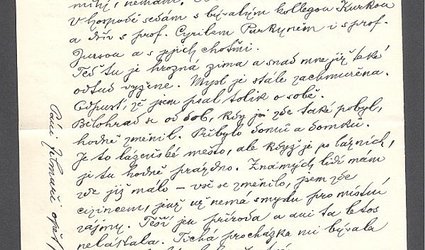 mimj, nemám.
V hospodě sedám s bývalým kollegou Kurkou
a dřív s prof. Cyrilem Purkyněm i s prof.
a s jejich chotěmi.
Též tu je hrozná zima a snad mne již také
odtud vyžene. Mysl je stále zachmuřena.
Odpusť, že jsem psal tolik o sobě.
Bělohrad se od dob, kdy já zde také pobyl,
hodně změnil. Přibylo domů a domků.
Je to lázeňské město, ale když je po lázních,
je tu hodně prázdno. Známých lidí mám
zde již málo – vše se změnilo, jsem zde
cizincem, jenž už nemá smyslu pro místní
zájmy. Těší jen příroda a ani ta letos
neláskala. Tichá procházka mi bývala
Paní